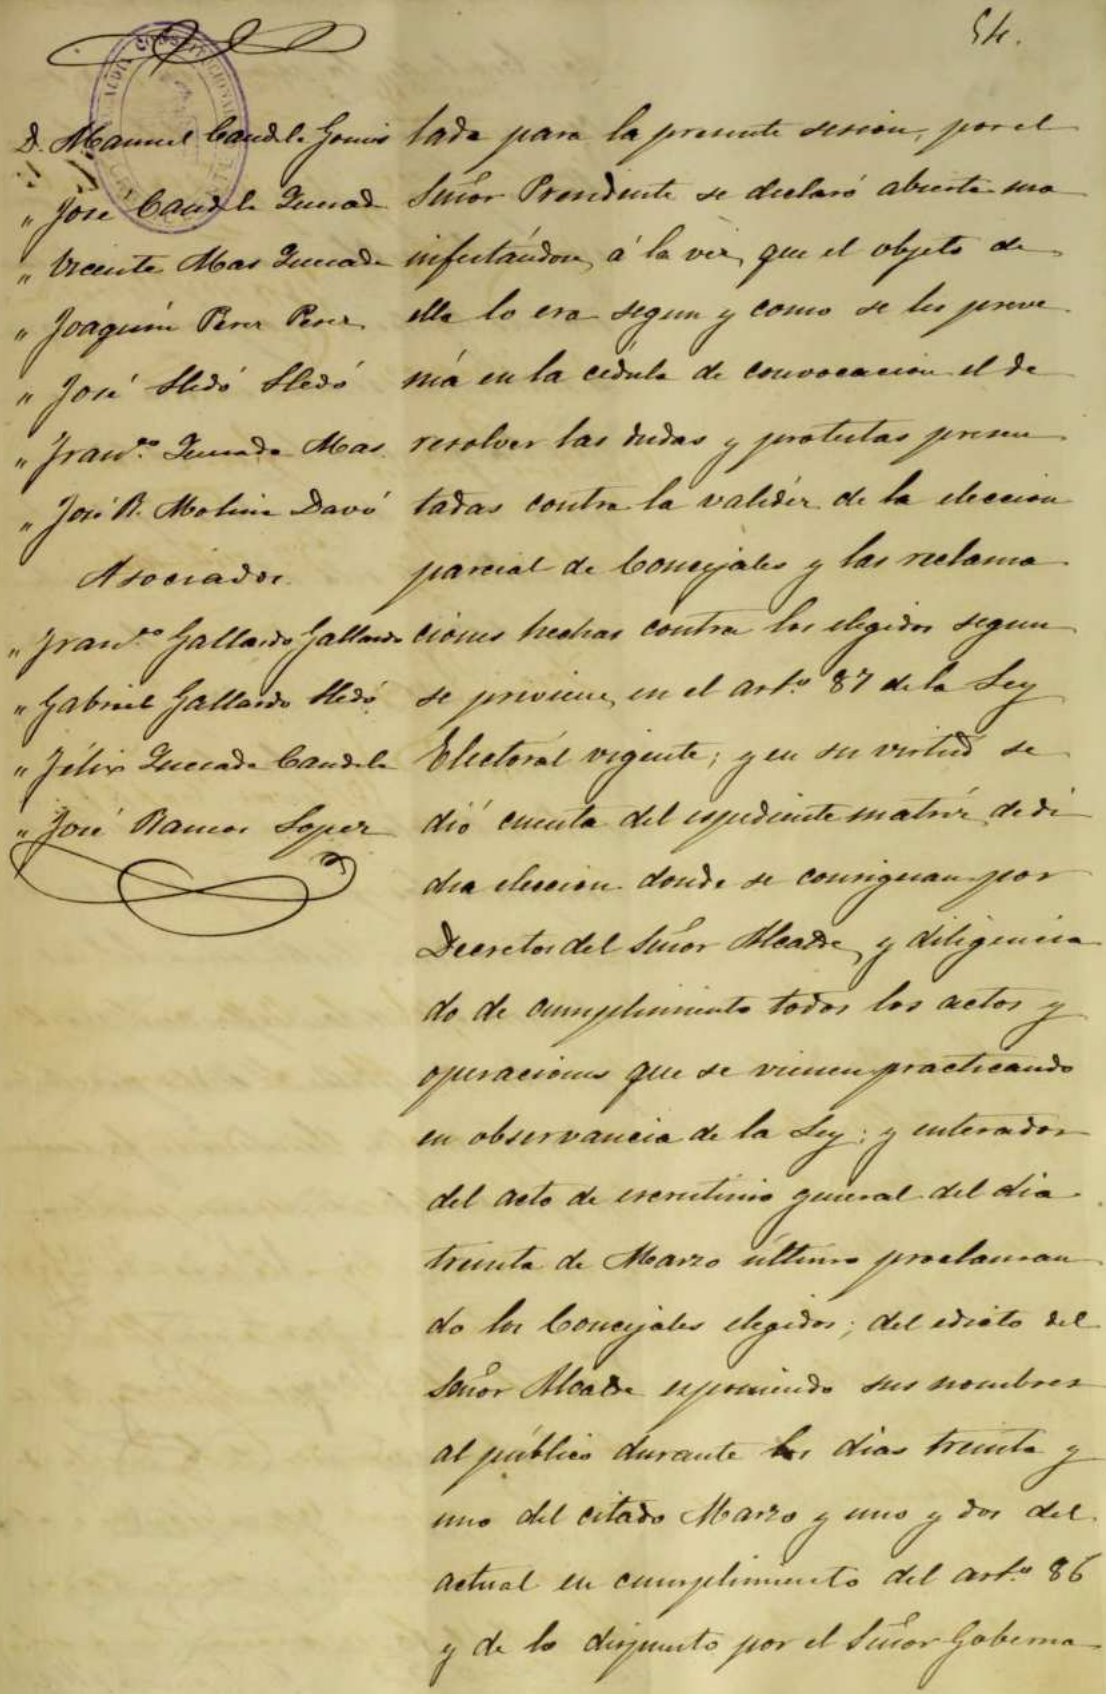 54.
D. Manuel Candela Gomis
" José Candela Quesad
" Vicente Mas Quesada
" Joaquin Perez Perez
" José Sledó Sledó
" Franco. Quesada Mas
" José R. Molina Davó
Asociados.
" Franco. Gallardo Gallardo
" Gabriel Gallardo Sledó
" Félix Quesada Candela
" José Ramos Lopez
lada para la presente sesion, por el
Señor Presidente se declaró abierta ma
nifestándose, á la vez, que el objeto de
ella lo era segun y como se les preve
nía en la cédula de convocacion el de
resolver las dudas y protestas presen
tadas contra la validéz de la eleccion
parcial de Concejales y las reclama
ciones hechas contra los elegidos segun
se previene, en el arto. 87 de la Ley
Electoral vigente; y en su virtud se
dió cuenta del espediente matriz de di
cha eleccion donde se consignan por
Decretos del Señor Alcalde, y diligencia
do de cumplimiento todos los actos y
operaciones que se vienen practicando
en observancia de la Ley; y enterados
del acto de escrutinio general del dia
treinta de Marzo último proclaman
do los Concejales elegidos; del edicto del
Señor Alcalde esponiendo sus nombres
al público durante los dias treinta y
uno del citado Marzo y uno y dos del
actual en cumplimiento del arto. 86
y de lo dispuesto por el Señor Goberna